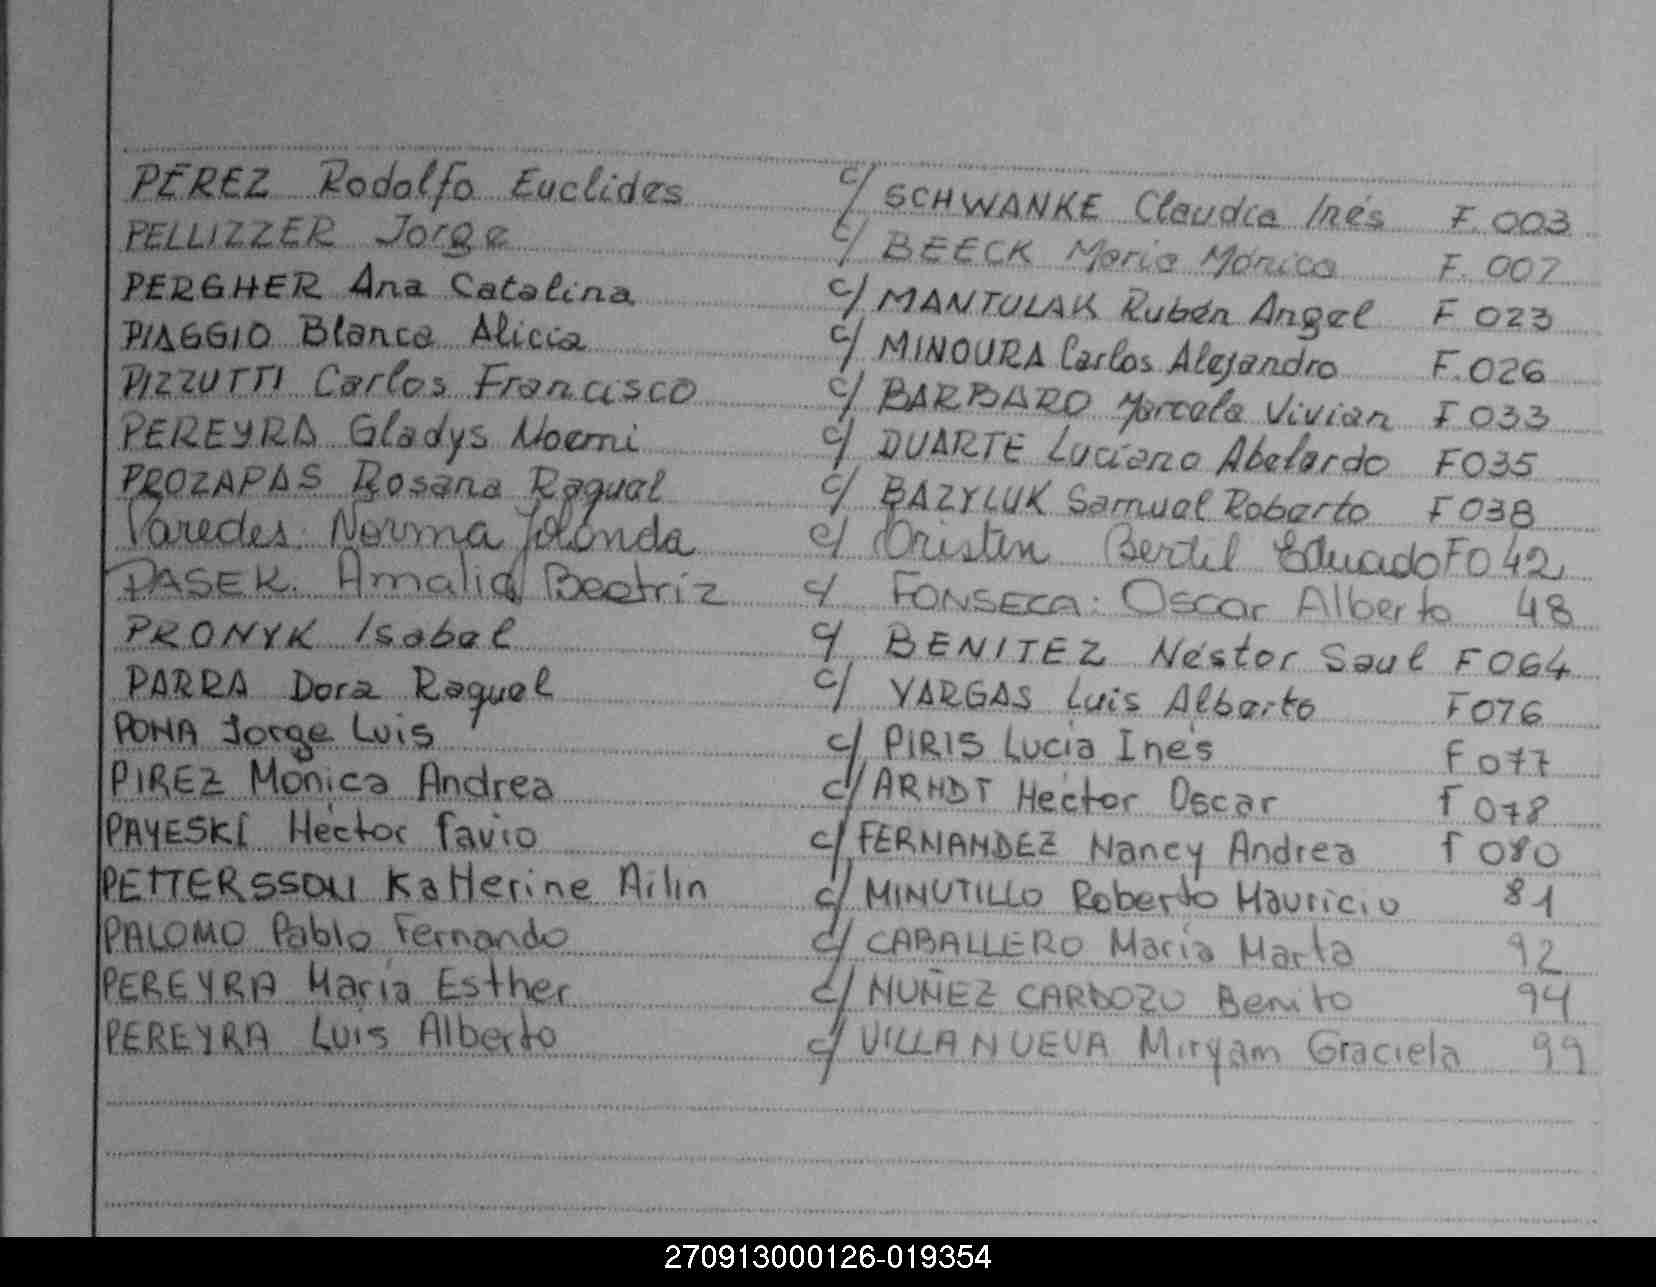 PÉREZ Rodolfo Euclides c/ SCHWANKE Claudia Inés F. 003
PELLIZZER Jorge c/ BEECK María Mónica F. 007
PERGHER Ana Catalina c/ MANTULAK Rubén Angel F 023
PIAGGIO Blanca Alicia c/ MINOURA Carlos Alejandro F. 026
PIZZUTTI Carlos Francisco c/ BARBARO Marcela Vivian F 033
PEREYRA Gladys Noemi c/ DUARTE Luciano Abelardo F 035
PROZAPAS Rosana Raquel c/ BAZYLUK Samuel Roberto F 038
Paredes Norma Yolanda c/ Bertil Eduardo F 042
PASEK Amalia Beatriz c/ FONSECA: Oscar Alberto 48
PRONYK Isabel c/ BENITEZ Néstor Saul F 064
PARRA Dora Raquel c/ VARGAS Luis Alberto F 076
PONA Jorge Luis c/ PIRIS Lucía Inés F 077
PIREZ Mónica Andrea c/ ARNDT Héctor Oscar F 078
PAYESKI Héctor Favio c/ FERNANDEZ Nancy Andrea F 080
PETTERSSON Katterine Ailin c/ MINUTILLO Roberto Mauricio 81
PALOMO Pablo Fernando c/ CABALLERO María Marta 92
PEREYRA María Esther c/ NUÑEZ CARDOZO Benito 94
PEREYRA Luis Alberto c/ VILLANUEVA Miryam Graciela 99
270913000126-019354